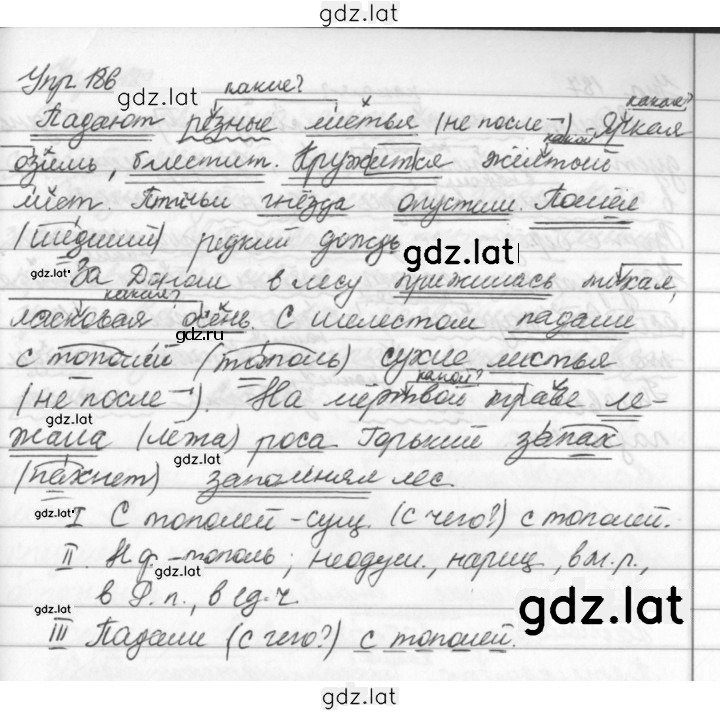 gdz.lat
Упр 186
какие?
gdz.lat
какая?
Падают резные листья (не после ¬) Яркая
какой?
озимь, блестит. Кружится жёлтый
лист. Птичьи гнёзда опустели. Пошёл
(шедший) редкий дождь gdz.lat
gdz.lat
За Доном в лесу прижилась тихая,
какая?
ласковая осень. С шелестом падали
gdz.ru
с тополей (тополь) сухие листья
какой?
(не после ¬). На мёртвой траве ле-
жала (лёжа) роса Горький запах
gdz.lat
(пахнет) заполнял лес
gdz.lat
I С тополей - сущ. (с чего?) с тополей.
gdz.lat
II. Н.ф. - тополь; неодуш., нариц, в м.р.,
в Р.п., в ед.ч
gdz.lat
gdz.lat
III Падали (с чего?) с тополей.
gdz.lat